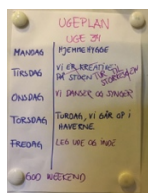 UGEPLAN
UGE 34
MANDAG HJEMMEHYGGE
TIRSDAG VI ER KREATIVE
PÅ STUEN TUR TIL
STOREGÅEN
ONSDAG VI DANSER OG SYNGER
TORSDAG TURDAG, VI GÅR OP I
HAVERNE
FREDAG LEG UDE OG INDE
GOD WEEKEND